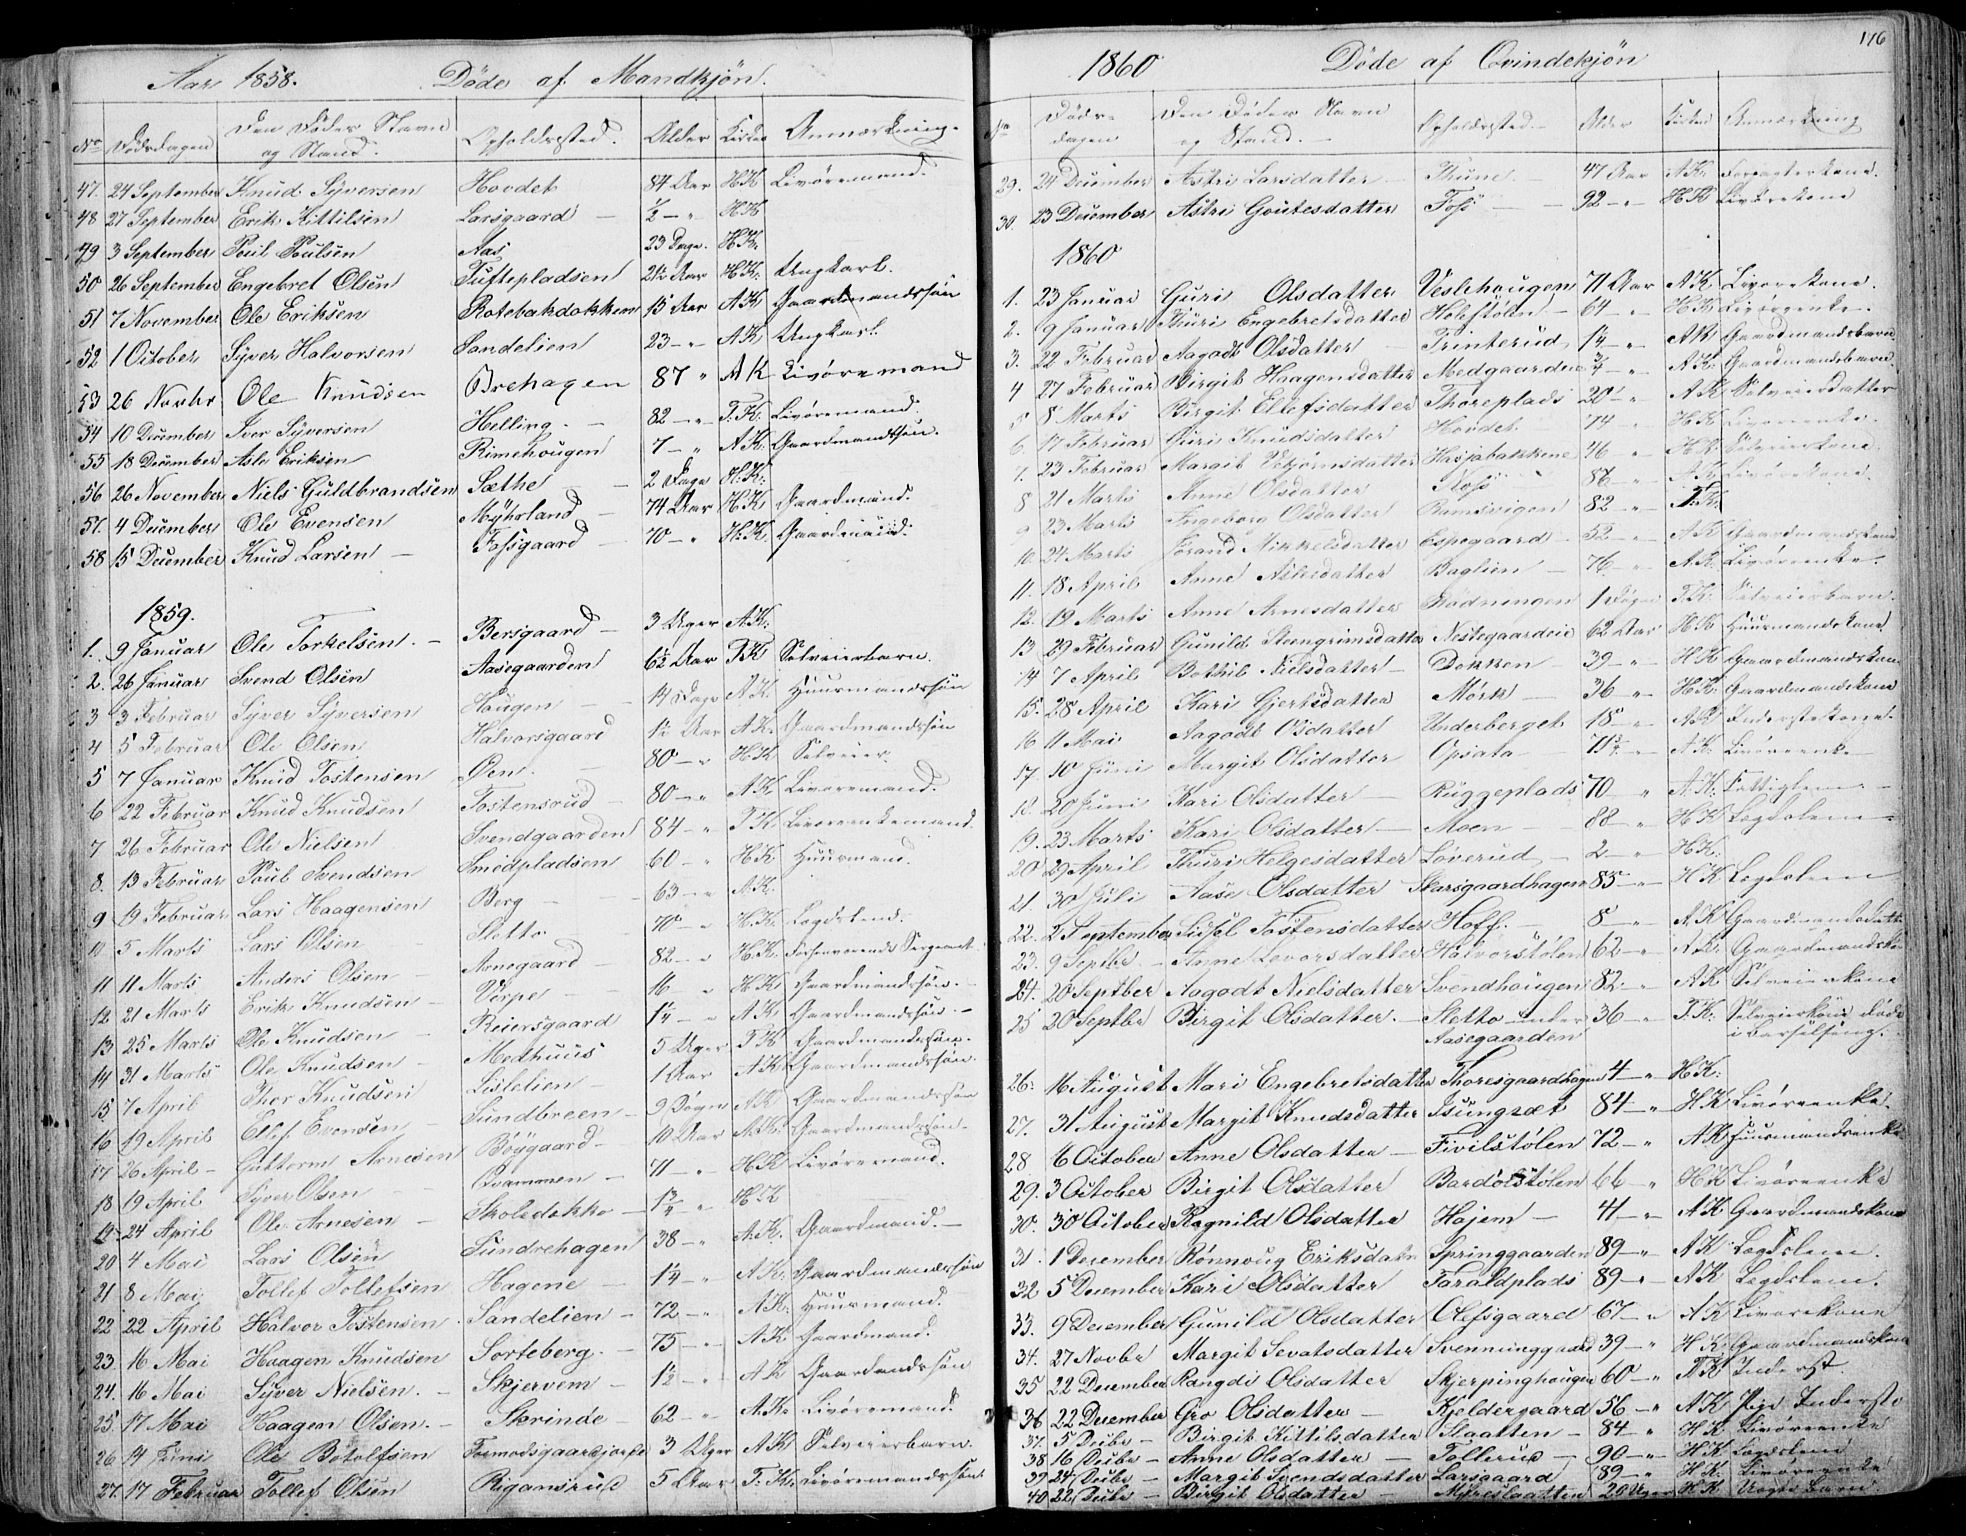 Aar 1858. Døde af Mandkjøn.
No Dødsdagen Den Dødes Navn og Stand. Opholdssted. Alder Kirke Anmærkning.
47. 24 September Knud Syversen Hovdet 84 Aar H.K Livøremand.
48 27 September Erik Kittilsen Larsgaard - ½ - " H.K
49 3 September Poul Poulsen Aas 23 Dage. H.K.
50 26 September Engebret Olsen Tuftepladsen 21½ Aar H.K. Ungkarl.
51 7 November Ole Eriksen Rotebakdokken 15 Aar A.K Gaardmandssøn
52 1 October Syver Halvorsen Sandelien 23 - " A.K Ungkarl.
53 26 Novbr Ole Knudsen Brehagen 87 " A K Livøremand
54 10 December Iver Syversen Helling. - 82 - " T.K. Livøremand.
55 18 December Asle Eriksen Rimehougen 7 - " A.K. Gaardmandssøn.
56 26 November Niels Guldbrandsen Sæthe - 2 Dage H.K.
57. 4 December Ole Evensen Myhrland - 74 Aar H.K Gaardmand.
58 15 December Knud Larsen - Fossgaard - 70 - " H.K. Gaardmand.
1859.
1. 9 Januar Ole Torkelsen. - Bersgaard - 3 Uger A.K.
2. 26 Januar Svend Olsen Aasegaarden 6½ Aar T.K Selveierbarn.
3 3 Februar Syver Syversen Haugen - 14 Dage A.K. Huusmandssøn
4 5 Februar Ole Olsen Halvorsgaard 1½ Aar A.K. Gaardmandssøn
5 7 Januar Knud Tostensen Øen. - 80 - " H.K Selveier.
6 22 Februar Knud Knudsen Tostensrud - 80 - " A.K Livøremand.
7 26 Februar Ole Nielsen Svendgaarden 84 - " T.K Livørenkemand.
8. 13 Februar Poul Svendsen Smedpladsen 60 - " H.K Huusmand.
9 19 Februar Lars Haagensen Berg - 63 - " A.K.
10 5 Marts Lars Olsen Sletto - 70 - " H.K. Legdslem.
11 11 Marts Anders Olsen Arnegaard - 82 - " H.K. Forhenværende Sergeant.
12 21 Marts Erik Knudsen - Verpe - 16 - " H.K. Gaardmandssøn. -
13 25 Marts Ole Knudsen - Reiersgaard 1¼ - " A.K. Gaardmandssøn. -
14 31 Marts Ole Knudsen - Medhuus 5 Uger T.K Gaardmandssøn.
15 7 April Thor Knudsen Lislelien - 1 Aar A.K. Gaardmandssøn.
16 19 April Ellef Evensen Sundbreen - 9 Døgn A.K. Gaardmandssøn
17 26 April - Guttorm Arnesen Bøygaard - 10 Aar A.K. Gaardmandssøn.
18 19 April Syver Olsen - 71 - " H.K Livøremand.
19 24 April Ole Arnesen - Skoledokko - 1¾ - " H.K
20 4 Mai Lars Olsen Sundrehagen 38 - " A.K. Gaardmand. -
21 8 Mai Tollef Tollefsen Hagene - 1¼ - " A.K. Gaardmandssøn
22 22 April Halvor Tostensen Sandelien - 72 - " A.K. Huusmand.
23. 16 Mai Haagen Knudsen Sorteberg. - 75 - " A.K Gaardmand.
24. 16 Mai Syver Nielsen. - Skjervem - 1½ - " A.K Gaardmandssøn
25. 17 Mai Haagen Olsen. - Skrinde - 62 - " A.K. Livøremand.
26 14 Juni Ole Botolfsen 3 Uger A.K Selveierbarn.
27. 17 Februar Tollef Olsen Rigansrud 5 Aar T.K. Livøremandssøn.
1860 Døde af Qvindekjøn 176
No Døds-dagen Den Dødes Navn og Stand. - Opholdssted. - Alder Kirken Anmærkning
29. 24 December Astri Larsdatter - Thune. 47 Aar A.K.
30. 23 December Astri Goutesdatter Foss - 92 - " H.K Livørekone
1860
1. 23 Januar Guri Olsdatter Veslehaugen 71 Aar A.K Livørekone.
2. 9 Januar Thuri Engebretsdatter Holestølen - 64 - " H.K Livøreenke.
3. 22 Februar Aagodt Olsdatter Trinterud, 1¼ - " A.K Gaardmandsbarn
4 27 Februar Birgit Haagensdatter Medgaarden ¾ - " A.K. Gaardmandsbarn.
5 8 Marts Birgit Ellefsdatter Thoreplads 20 - " A.K Selveierdatter
6. 17 Februar Guri Knudsdatter Hovdet 74 " H.K Livøreenke.
7. 23 Februar Margit Vebjørnsdatter Hasjabakkene 46 " H.K Selveierkone
8 21 Marts Anne Olsdatter Noss 86 - " A.K Livørekone.
9 23 Marts Ingeborg Olsdatter Ramsvigen 82 - " T.K.
10. 24 Marts Jørand Mikkelsdatter Espegaard - 52 - " A.K Gaardmandskone
11. 18 April Anne Aslesdatter Baglien - 76 - " A.K. Livøreenke.
12. 19 Marts Anne Arnesdatter Rødningen 1 Døgn T.K. Selveierbarn.
13 29 Februar Gunild Steengrimsdatter Nestegaardeie 62 Aar H.K Huusmandskone
14 7 April Bothil Nielsdatter - Dokken 39 - " H.K Gaardmandskone
15. 28 April Kari Gjertsdatter Mørk - 36 " H.K. Gaardmandskone
16 11 Mai Aagodt Olsdatter Underberget 18 - " A.K Inderstekone.
17 10 Juni Margit Olsdatter Opsata 71¾ " A.K. Livøreenke
18. 20 Juni Kari Olsdatter - Ruggeplads 70 " A.K. Fattiglem -
19. 23 Marts Kari Olsdatter - Moen - 88 - " H.K Legdslem -
20 29 April Thuri Helgesdatter Løverud - 2 - " H.K.
21 30 Juli Aase Olsdatter Skarsgaardhagen 85 - " H.K Legdslem
22. 2 September Sissel Tostensdatter Hoff. - 8 " A.K Gaardmandsdatter
23. 9 Septbr - Anne Levorsdatter Halvorstølen 62 - " A.K. Gaardmandsko
24. 20 Septber Aagodt Nielsdatter Svendhougen 82. " A.K Selveierkone
25 20 Septbr Birgit Olsdatter. - Sletto under Aasegaarden 36 " T.K. Selveierkone døde i barselseng.
26. 16 August Mari Engebretsdatter Thoresgaardhagen 4 - " H.K.
27. 31 August Margit Knudsdatter Isungset 84 - " H.K Livøreenke.
28 6 October Anne Olsdatter - Fivilstølen 72 - " A.K Huusmandsenke
29. 3 October Birgit Olsdatter Bardolstølen 66 " H.K Livøreenke
30. 30 October Ragnild Olsdatter Hajem - 41 - " A.K Gaardmandskone
31. 1 December Rønnoug Eriksdatr Springgaarden 89 - " A.K Legdslem.
32. 5 December Kari Olsdatter Taraldplads 89 - " A.K Legdslem.
33. 9 December Gunild Olsdatter Olefsgaard 67 - " A.K Livørekone
34. 27 Novbr Margit Sevatsdatter Svenninggaard 39 " H.K. Gaardmandskone
35 22 December Rangdi Olsdatter Skjerpinghougen 60 - " A.K Inderst.
36 22 December Gro Olsdatter - Kjeldergaard 56 - " A.K Pige Inderst
37. 5 Decbr - Birgit Kittilsdatter Slaatten - 84 " H.K Livøreenke
38 16 Decbr - Anne Olsdatter - Tollerud - 90 - " H.K Legdslem
39 24 Decbr - Margit Svendsdatter Larsgaard 89 - " H.K. Livøreenke
40 22 Decbr - Birgit Olsdatter - 20 Uger H.K. Uægte Barn.